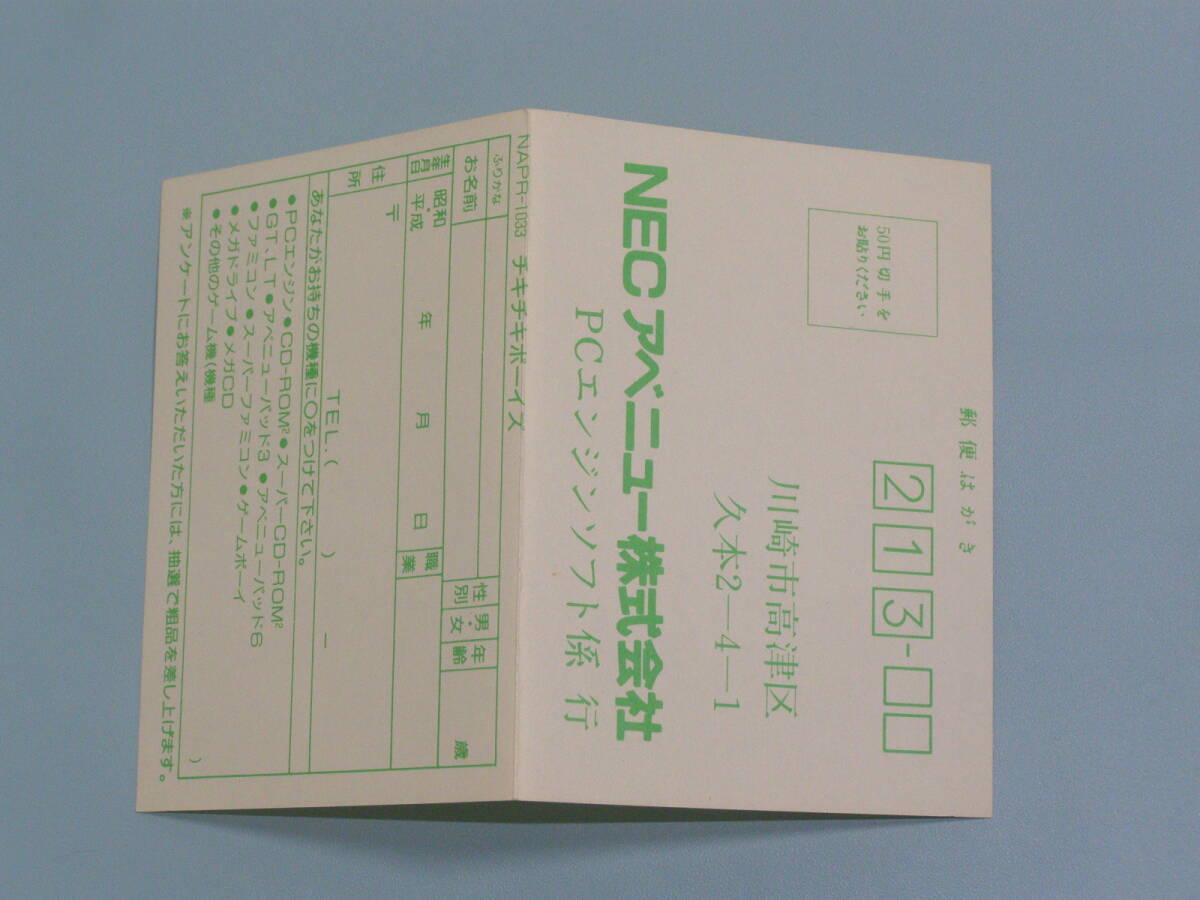 郵便はがき
213-
50円切手を
お貼りください
川崎市高津区
久本2―4―1
NECアベニュー株式会社
PCエンジンソフト係 行
NAPR-1033 チキチキボーイズ
ふりかな
お名前
性別
男・女
年齢
歳
生年月日
昭和・平成 年 月 日
職業
住所
〒
TEL.( ) −
あなたがお持ちの機種に○をつけて下さい。
●PCエンジン●CD-ROM²●スーパーCD-ROM²
●GT、LT●アベニューパッド3●アベニューパッド6
●ファミコン●スーパーファミコン●ゲームボーイ
●メガドライブ●メガCD
●その他のゲーム機(機種 )
※アンケートにお答えいただいた方には、抽選で粗品を差し上げます。